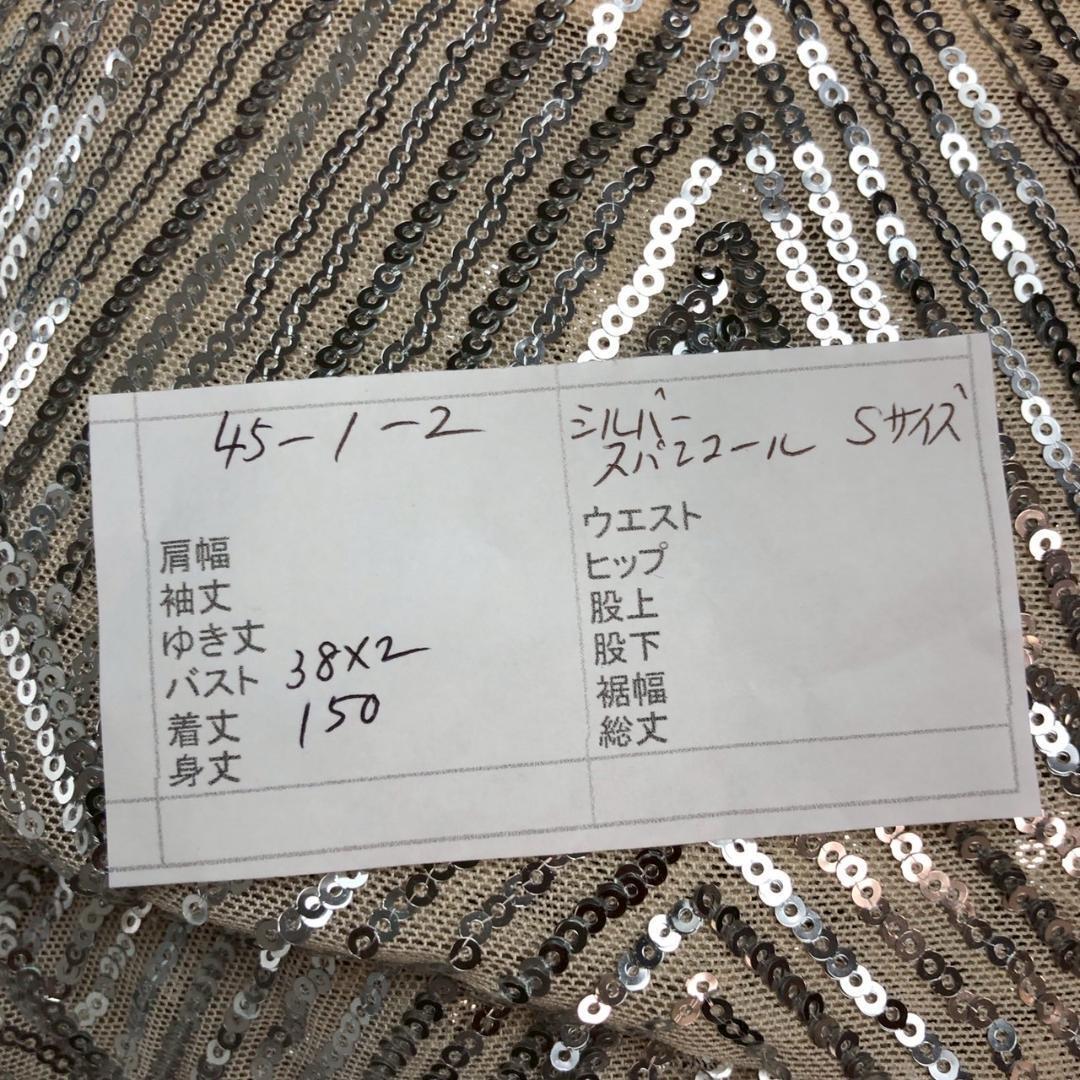 45-1-2
肩幅
袖丈
ゆき丈
バスト 38×2
着丈 150
身丈
シルバー Sサイズ
スパンコール
ウエスト
ヒップ
股上
股下
裾幅
総丈